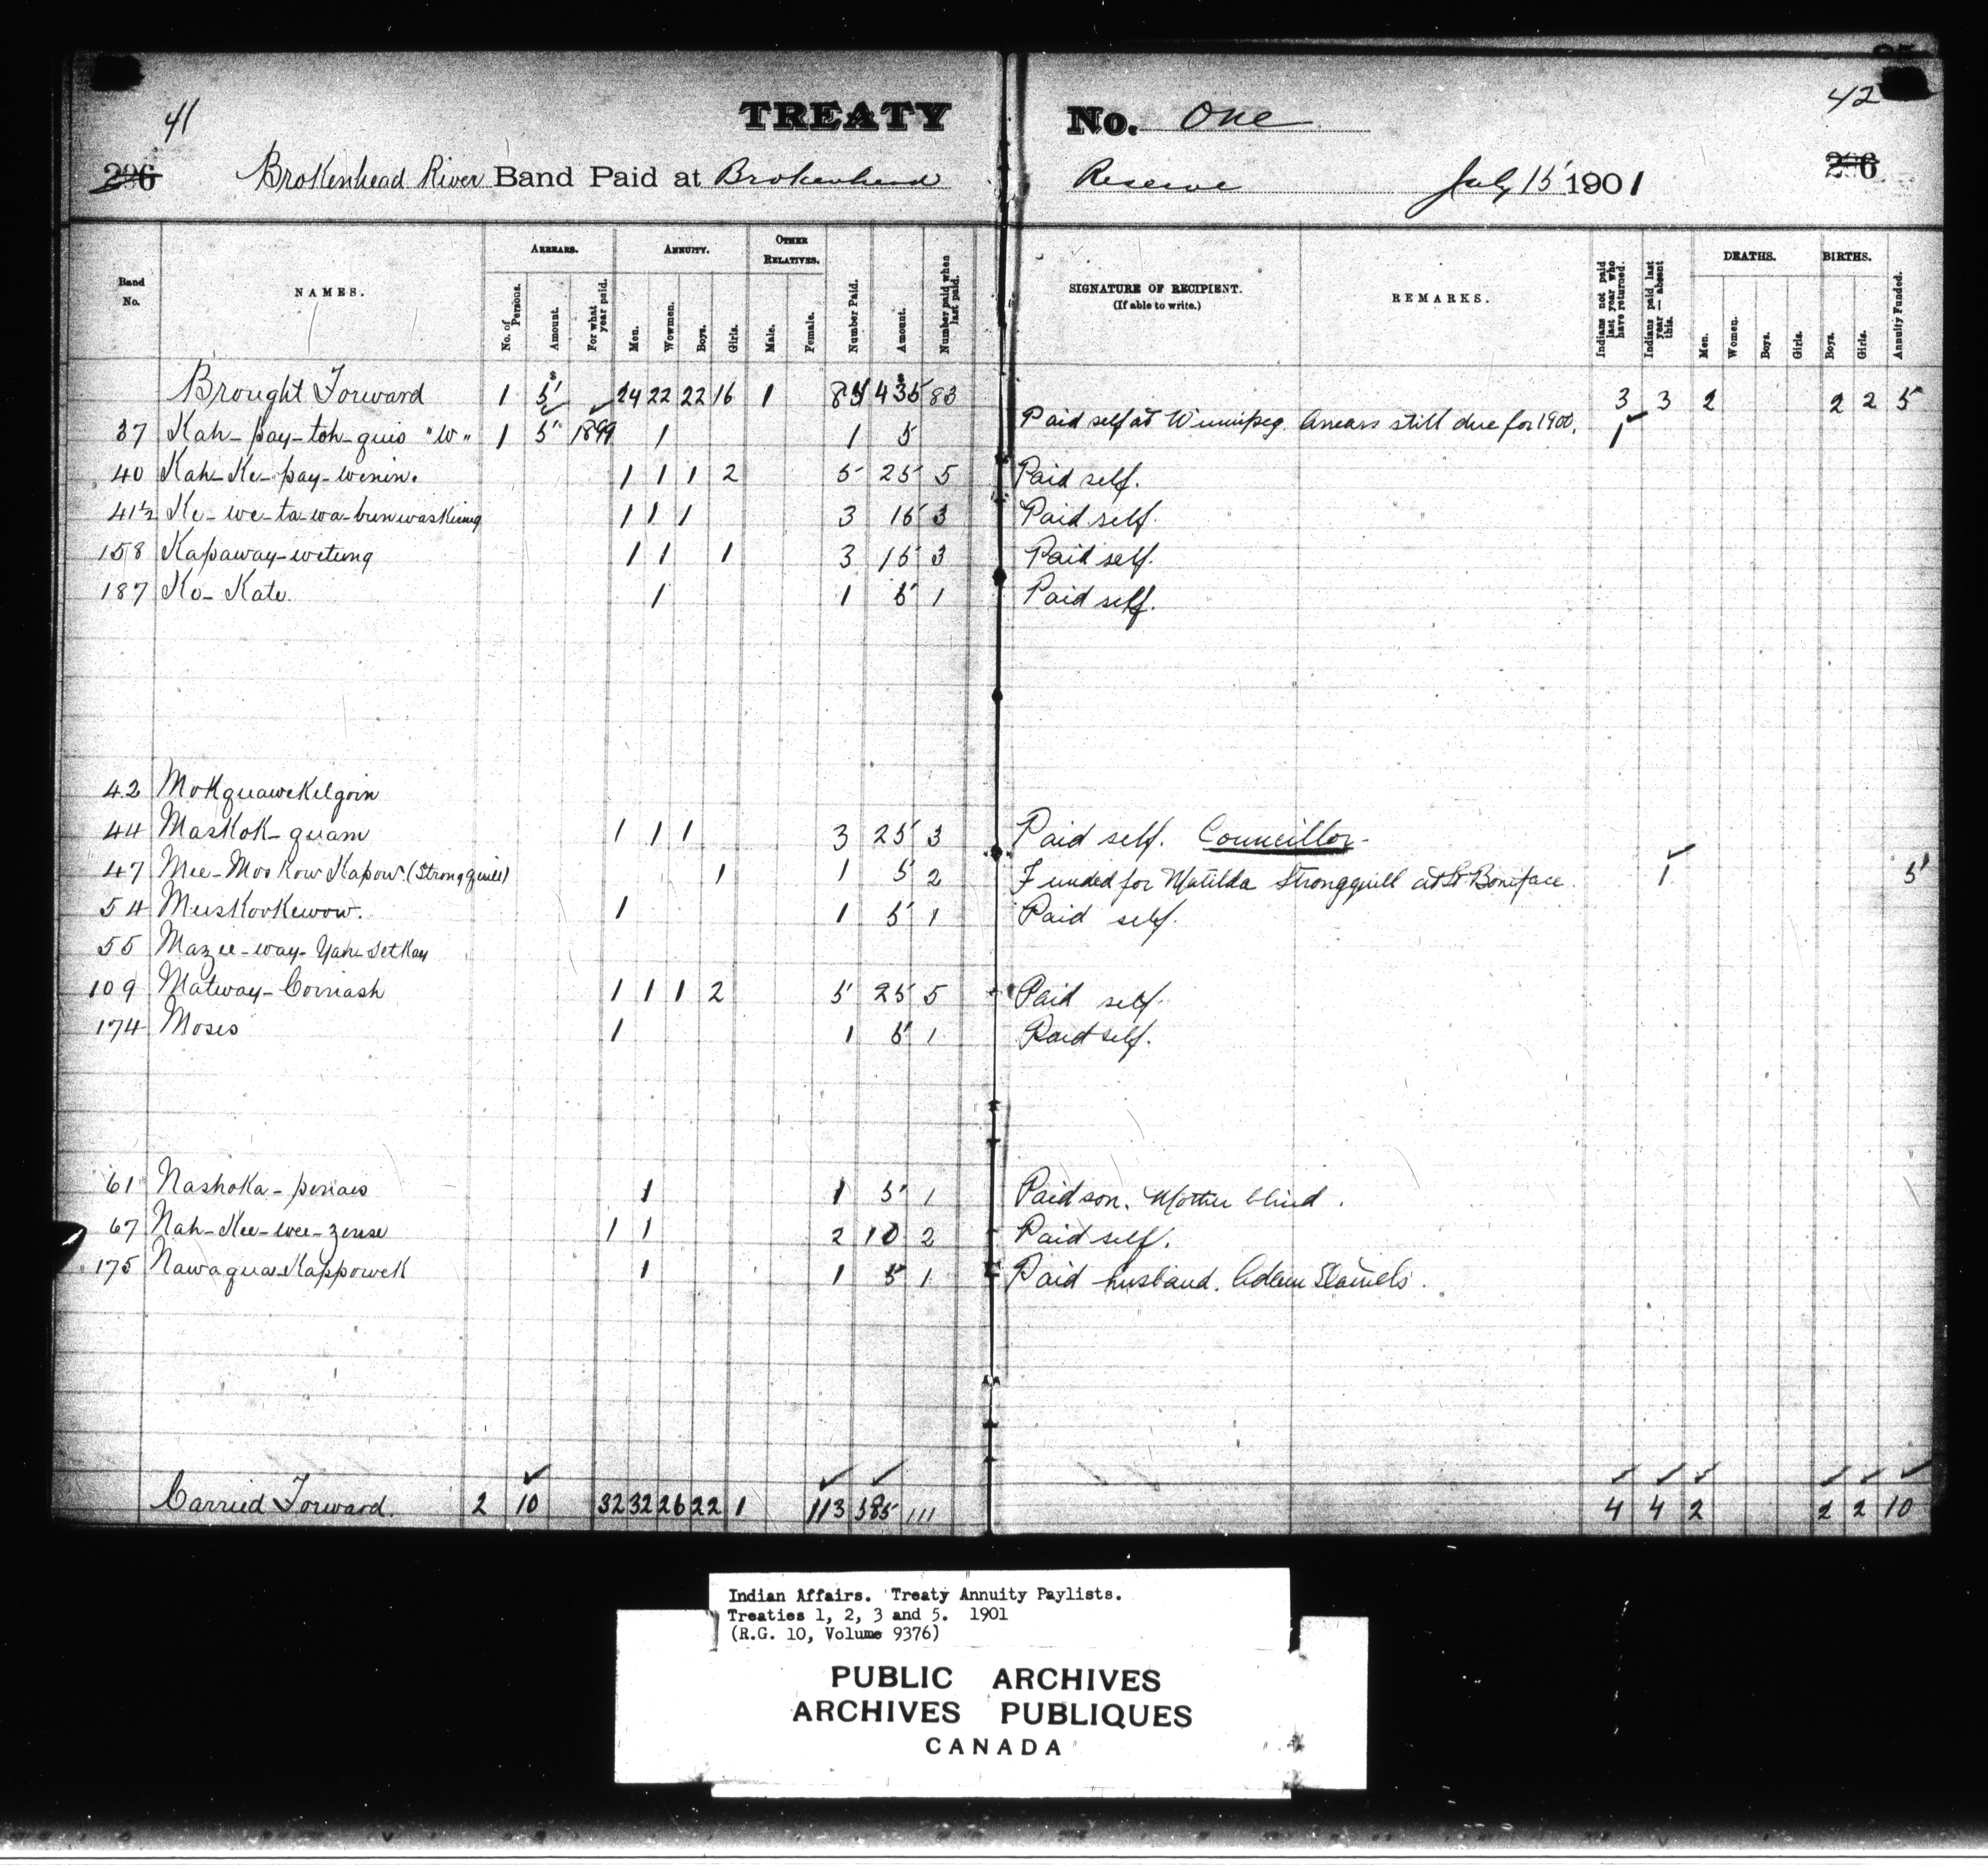 41
TREATY No. One
42
296 Brokenhead River Band Paid at Brokenhead Reserve July 15 1901 296
Band No. NAMES. ARREARS. ANNUITY. OTHER RELATIVES. Number Paid. Amount. Number paid when last paid. SIGNATURE OF RECIPIENT. (If able to write.) REMARKS. Indians not paid last year who have returned. Indians paid last year — absent this. DEATHS. BIRTHS. Annuity Funded.
No. of Persons. Amount. For what year paid. Men. Wowmen. Boys. Girls. Male. Female. Men. Women. Boys. Girls. Boys. Girls.
Brought Forward 1 $5 24 22 22 16 1 84 $435 83 3 3 2 2 2 5
37 Kah-pay-toh-quis "W" 1 5 1899 1 1 5 Paid self at Winnipeg. Arrears still due for 1900. 1
40 Kah-Ke-pay-wenin. 1 1 1 2 5 25 5 Paid self.
41½ Ke-we-ta-wa-bunwaskung 1 1 1 3 15 3 Paid self.
158 Kapaway-wetung 1 1 1 3 15 3 Paid self.
187 Ko-Kate. 1 1 5 1 Paid self.
42 Mokquawekilgoin
44 Maskok-quam 1 1 1 3 25 3 Paid self. Councillor
47 Mee-Moskow Kapow. (Strongquill) 1 1 5 2 Funded for Matilda Strongquill at St Boniface. 1 5
54 Muskookewow. 1 1 5 1 Paid self.
55 Mazee-way-Yah-Setkay
109 Matway-Comash 1 1 1 2 5 25 5 Paid self.
174 Moses 1 1 5 1 Paid self.
61 Nashoka-penaes 1 1 5 1 Paid son. Mother blind.
67 Nah-Kee-wee-zense 1 1 2 10 2 Paid self.
175 Nawaqua-Kappowek 1 1 5 1 Paid husband. Adam Daniels.
Carried Forward. 2 10 32 32 26 22 1 113 585 111 4 4 2 2 2 10
Indian Affairs. Treaty Annuity Paylists.
Treaties 1, 2, 3 and 5. 1901
(R.G. 10, Volume 9376)
PUBLIC ARCHIVES
ARCHIVES PUBLIQUES
CANADA